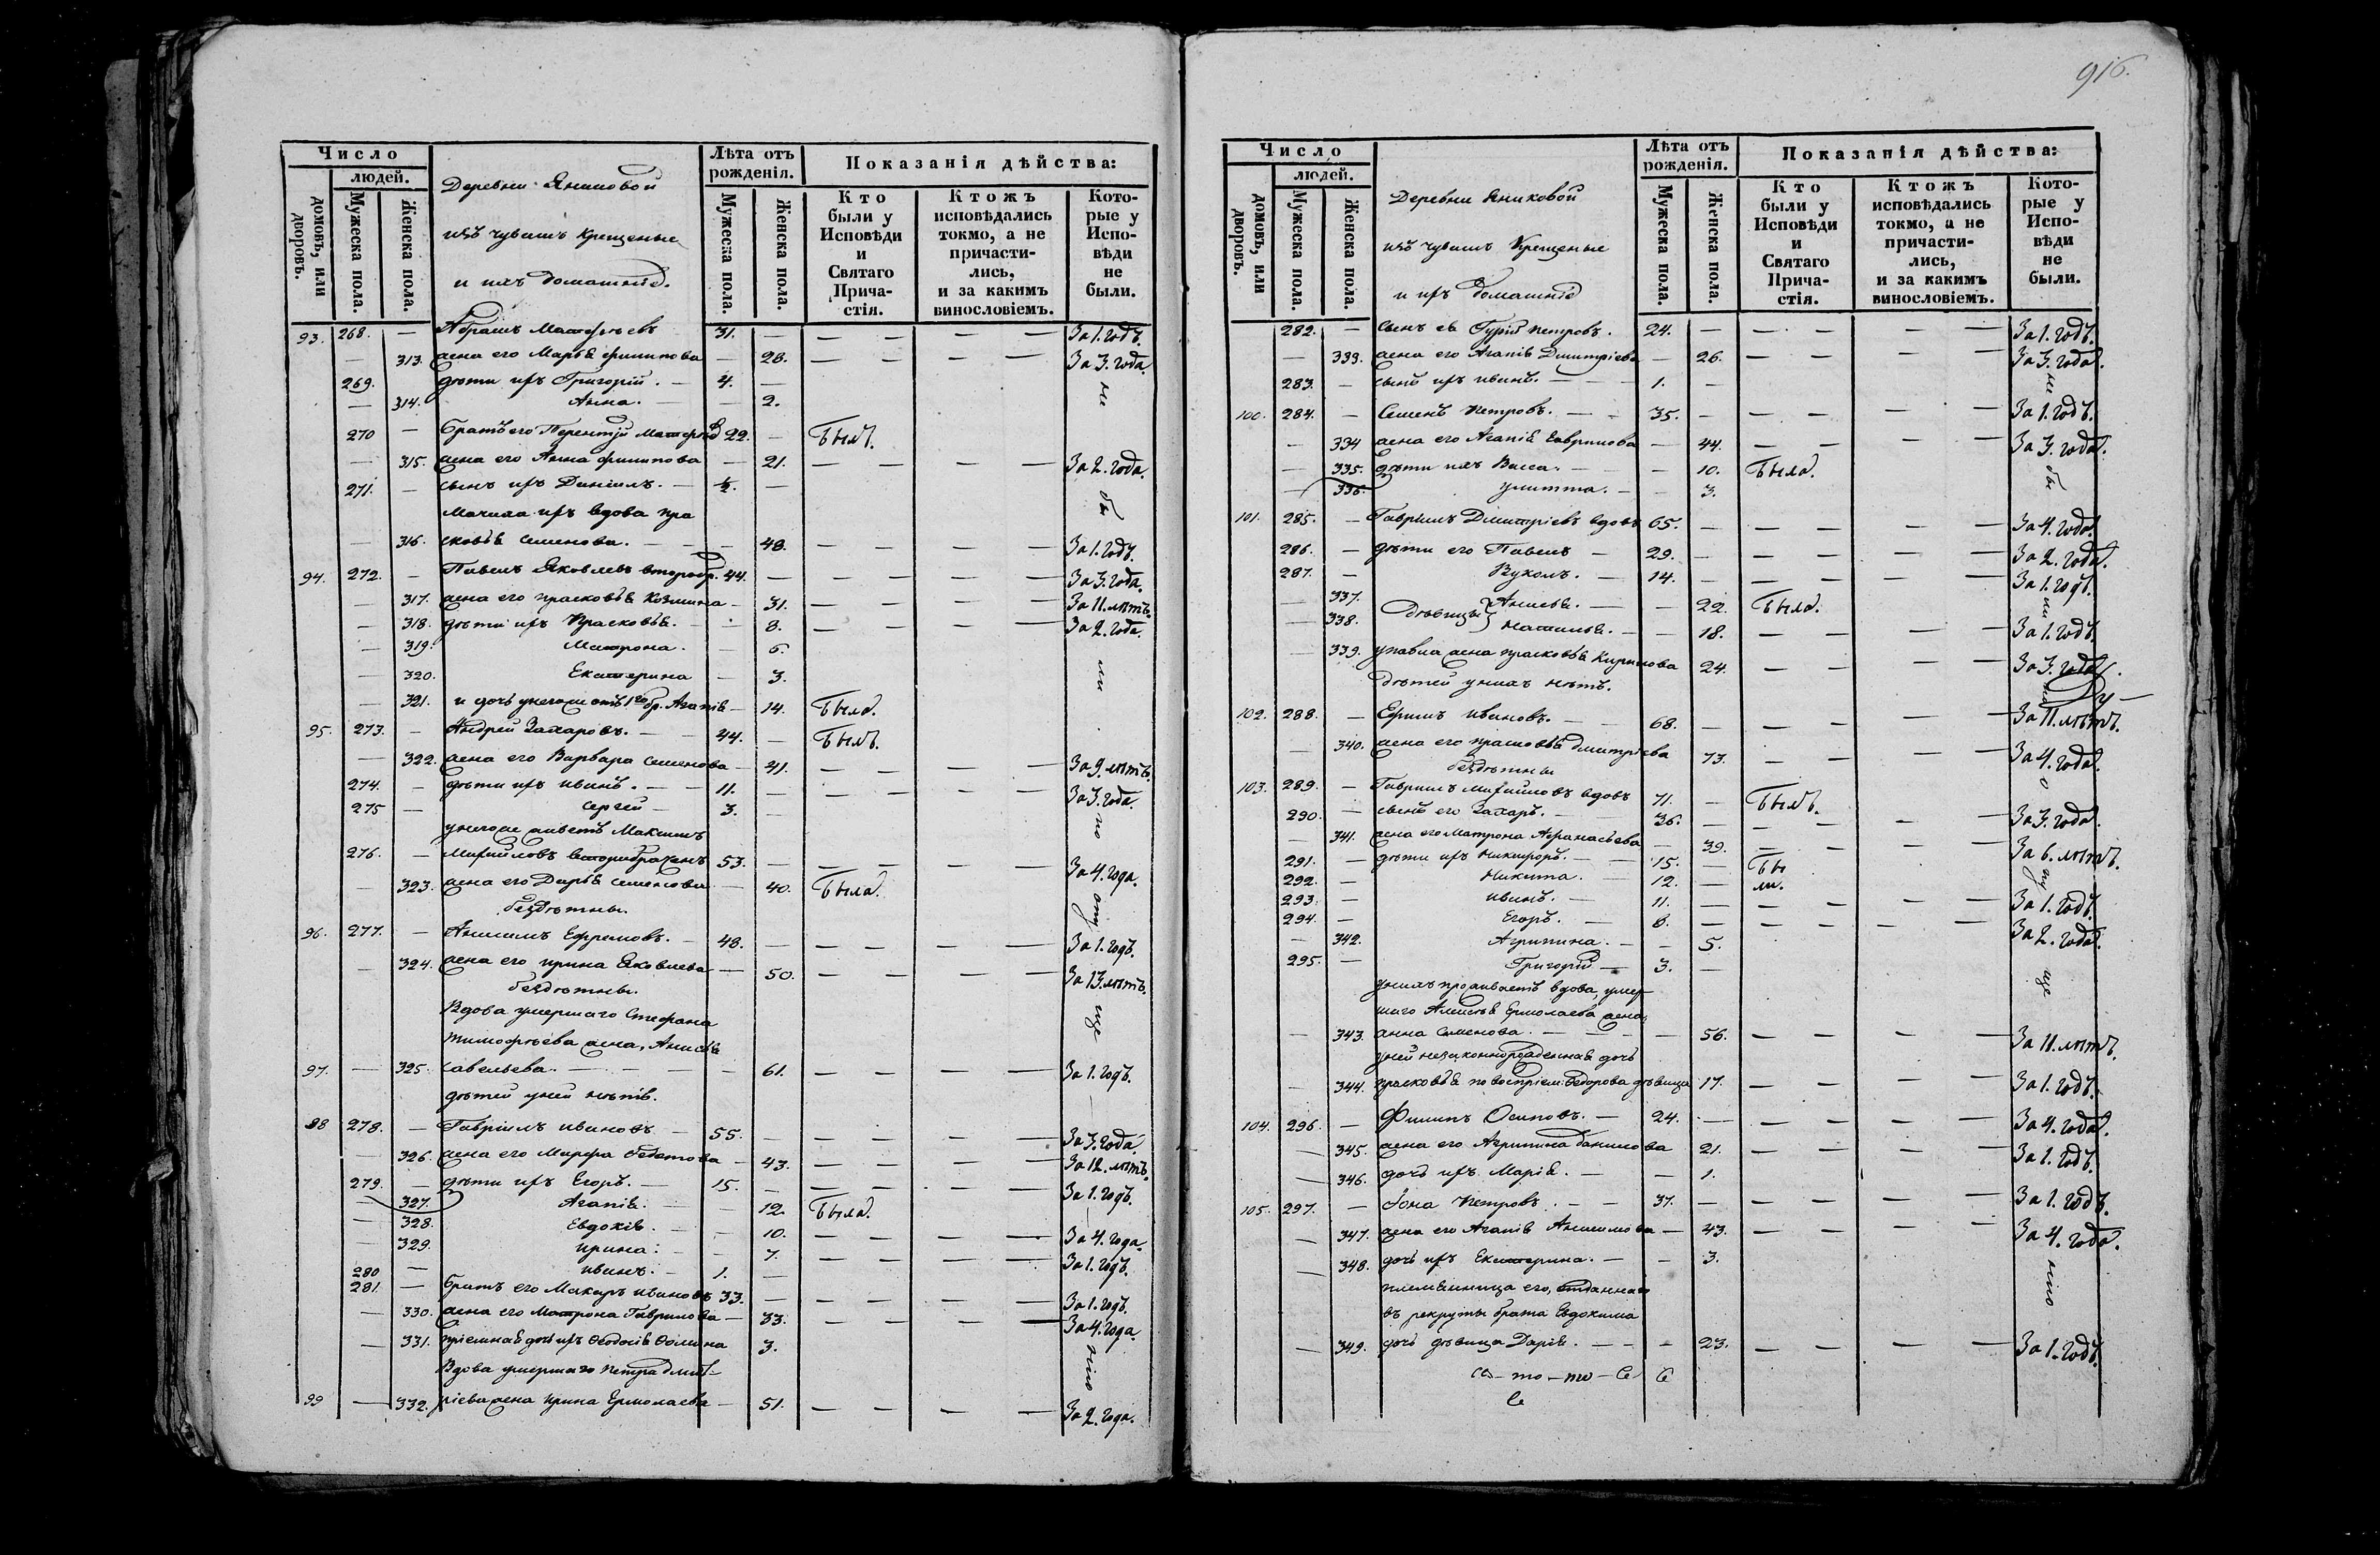 916.
Число
людей.
домовъ, или дворовъ.
Мужеска пола.
Женска пола.
Деревни Яниковой
изъ чувашъ крещеные
и ихъ домашніе.
Лѣта отъ рожденія.
Мужеска пола.
Женска пола.
Показанія дѣйства:
Кто были у Исповѣди и Святаго Причастія.
Ктожъ исповѣдались токмо, а не причастились, и за какимъ винословіемъ.
Которые у Исповѣди не были.
93. 268. — Абрамъ Матфѣевъ 31. — За 1. годъ.
— 313. жена его Марья Филипова — 28. За 3. года.
269. дѣти ихъ Григорій. — 4. —
— 314. Анна. — 2.
270 — братъ его Терентій Матфѣевъ 22. — Былъ.
— 315. жена его Анна Филипова — 21. За 2. года.
271. — сынъ ихъ Даніилъ. — ½. —
Мачиха ихъ вдова Пра
— 316. сковья Семенова. — 48. За 1. годъ.
94. 272. — Павелъ Яковлевъ второбр. 44. — За 3. года.
— 317. жена его Прасковья Козмина — 31. За 11. лѣтъ.
— 318. дѣти ихъ Прасковья. — 8. За 2. года.
— 319. Матрона. — 6.
— 320. Екатерина — 3.
— 321. и дочь у него же отъ 1го бр. Агапія — 14. Была.
95. 273. — Андрей Захаровъ. — 44. — Былъ.
— 322. жена его Варвара Семенова — 41. За 9. лѣтъ.
274. — дѣти ихъ Иванъ. — 11. — За 3. года.
275 — Сергей — 3. —
у него же живетъ Максимъ
276. — Михайловъ второбраченъ 53. — За 4. года.
— 323. жена его Дарья Семенова — 40. Была.
бездѣтны.
96. 277. — Анисимъ Ефремовъ. — 48. — За 1. годъ.
— 324. жена его Ирина Яковлева — 50. За 13. лѣтъ.
бездѣтны.
Вдова умершаго Стефана
Тимофѣева жена, Анисья
97. — 325. Савельева. — 61. За 1. годъ.
дѣтей у ней нѣтъ.
98 278. — Гавріилъ Ивановъ — 55. — За 3. года.
— 326. жена его Марфа — 43. За 12. лѣтъ.
279. — дѣти ихъ Егоръ. — 15. — За 1. годъ.
— 327. Агапія. — 12. Была.
— 328. Евдокія. — 10. За 4. года.
— 329. Ирина. — 7. За 1. годъ.
280 — Иванъ. — 1. —
281. — братъ его Макаръ Ивановъ 33. — За 1. годъ.
— 330. жена его Матрона Гаврилова — 33. За 4. года.
— 331. пріемная дочь ихъ Ѳеодосія Ѳомина 3.
Вдова умершаго Петра Дмит-
99 — 332. ріева жена Ирина Ермолаева — 51. За 2. года.
не бы ли по опущенію
Число
людей.
домовъ, или дворовъ.
Мужеска пола.
Женска пола.
Деревни Яниковой
изъ чувашъ крещеные
и ихъ домашніе
Лѣта отъ рожденія.
Мужеска пола.
Женска пола.
Показанія дѣйства:
Кто были у Исповѣди и Святаго Причастія.
Ктожъ исповѣдались токмо, а не причастились, и за какимъ винословіемъ.
Которые у Исповѣди не были.
282. — сынъ ея Гурій Петровъ. 24. — За 1. годъ.
— 333. жена его Агапія Дмитріева — 26. За 3. года.
283. — сынъ ихъ Иванъ. — 1. —
100. 284. — Семенъ Петровъ. — 35. — За 1. годъ.
— 334 жена его Агапія Гаврилова — 44. За 3. года.
— 335. дѣти ихъ Васса. — 10. Была.
— 336. Улитта. — 3.
101. 285. — Гавріилъ Дмитріевъ вдовъ 65. — За 4. года.
286. — дѣти его Павелъ — 29. — За 2. года.
287. — Вуколъ. — 14. — За 1. годъ.
— 337. дѣвицы Анисья. — 22. Была.
— 338. Наталья. — 18. За 1. годъ.
— 339. у Павла жена Прасковья Кирилова 24. За 3. года.
дѣтей у нихъ нѣтъ.
102. 288. — Ефимъ Ивановъ. — 68. За 11. лѣтъ.
— 340. жена его Прасковья Дмитріева 73. За 4. года.
бездѣтны
103. 289. — Гавріилъ Михайловъ вдовъ 71. — Былъ.
290. — сынъ его Захаръ. — 36. — За 3. года.
— 341. жена его Матрона Афанасьева — 39. За 6. лѣтъ.
291. — дѣти ихъ Никифоръ. — 15. — Бы
292. — Никита. — 12. — ли.
293. — Иванъ. — 11. — За 1. годъ.
294. — Егоръ. — 8. — За 2. года.
— 342. Агрипина. — 5.
295. — Григорій — 3. —
у нихъ проживаетъ вдова, умер-
шаго Алексѣя Ермолаева жена,
— 343. Анна Семенова. — 56. За 11. лѣтъ.
у ней незаконнорожденная дочь
— 344. Прасковья по воспріем: Ѳедорова дѣвица 17. За 1. годъ.
104. 296. — Филипъ Осиповъ. — 24. — За 4. года.
— 345. жена его Агрипина Данилова 21. За 1. годъ.
— 346. дочь ихъ Марія. — 1.
105. 297. — Іона Петровъ. — 37. — За 1. годъ.
— 347. жена его Агапія Анисимова — 43. За 4. года.
— 348. дочь ихъ Екатерина. — 3.
племянница его, отданнаго
въ рекруты брата Евдокима
— 349. дочь дѣвица Дарія. — 23. За 1. годъ.
не бы ли по опущенію